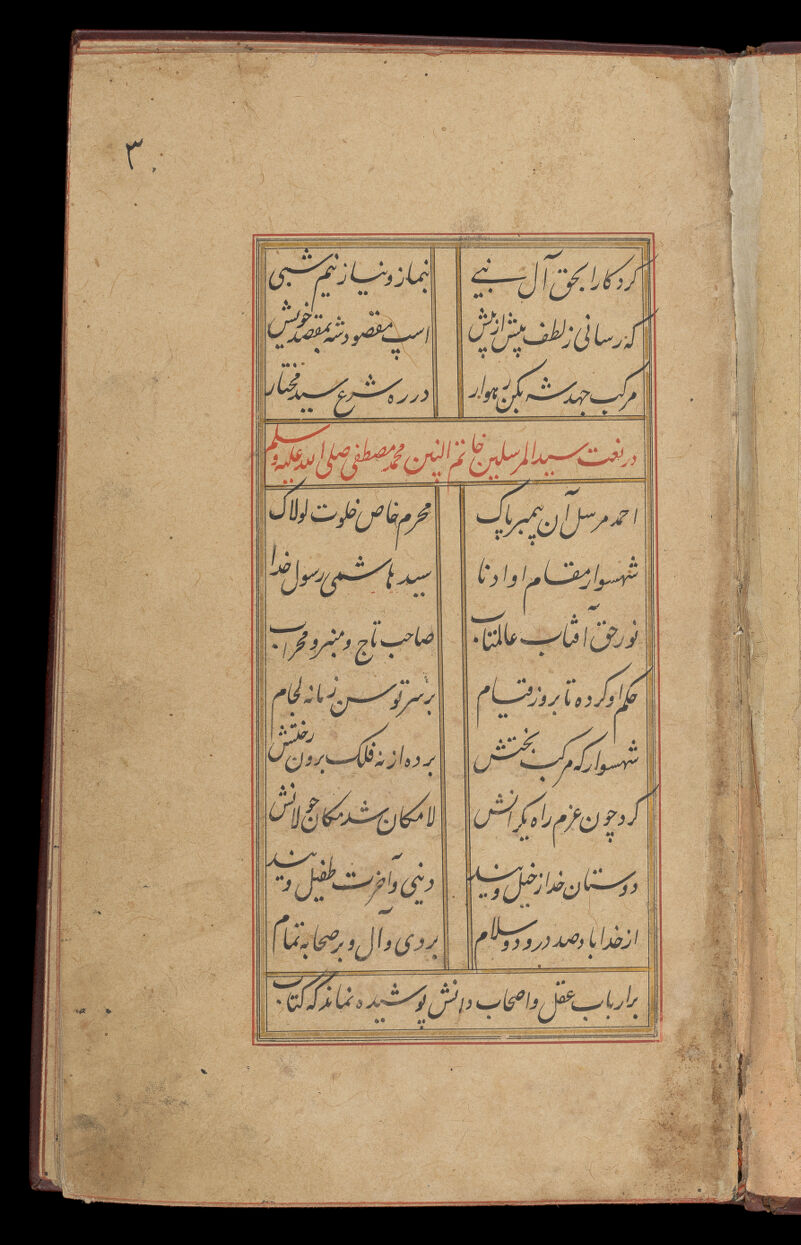 ۳
کردکارا بحق آل نبی بنماز و نیاز نیم شبی
که رسانی ز لطف پیش از پیش اسپ مقصود شه بمقصد خویش
مرکب جهد شه بکن رهوار در ره شرع سید مختار
در نعت سید المرسلین خاتم النبین محمد مصطفی صلی الله علیه وسلم
احمد مرسل آن پیمبر پاک محرم خاص خلوت لولاک
شهسوار مقام او ادنا سید هاشمی رسول خدا
نور حق آفتاب عالمتاب صاحب تاج و منبر و محراب
حکم او کرده تا بروز قیام بر سر توسن زمانه لجام
شهسوار که مرکب بختش برده از نه فلک برون رختش
کرد چون عزم راه یکرانش لامکان شد مکان جولانش
دوستان خدا ز خیل ویند دینی و آخرت طفیل ویند
از خدا باد صد درود و سلام بر وی و آل و بر صحابه تمام
بر ارباب عقل و اصحاب دانش پوشیده نماند که کتاب